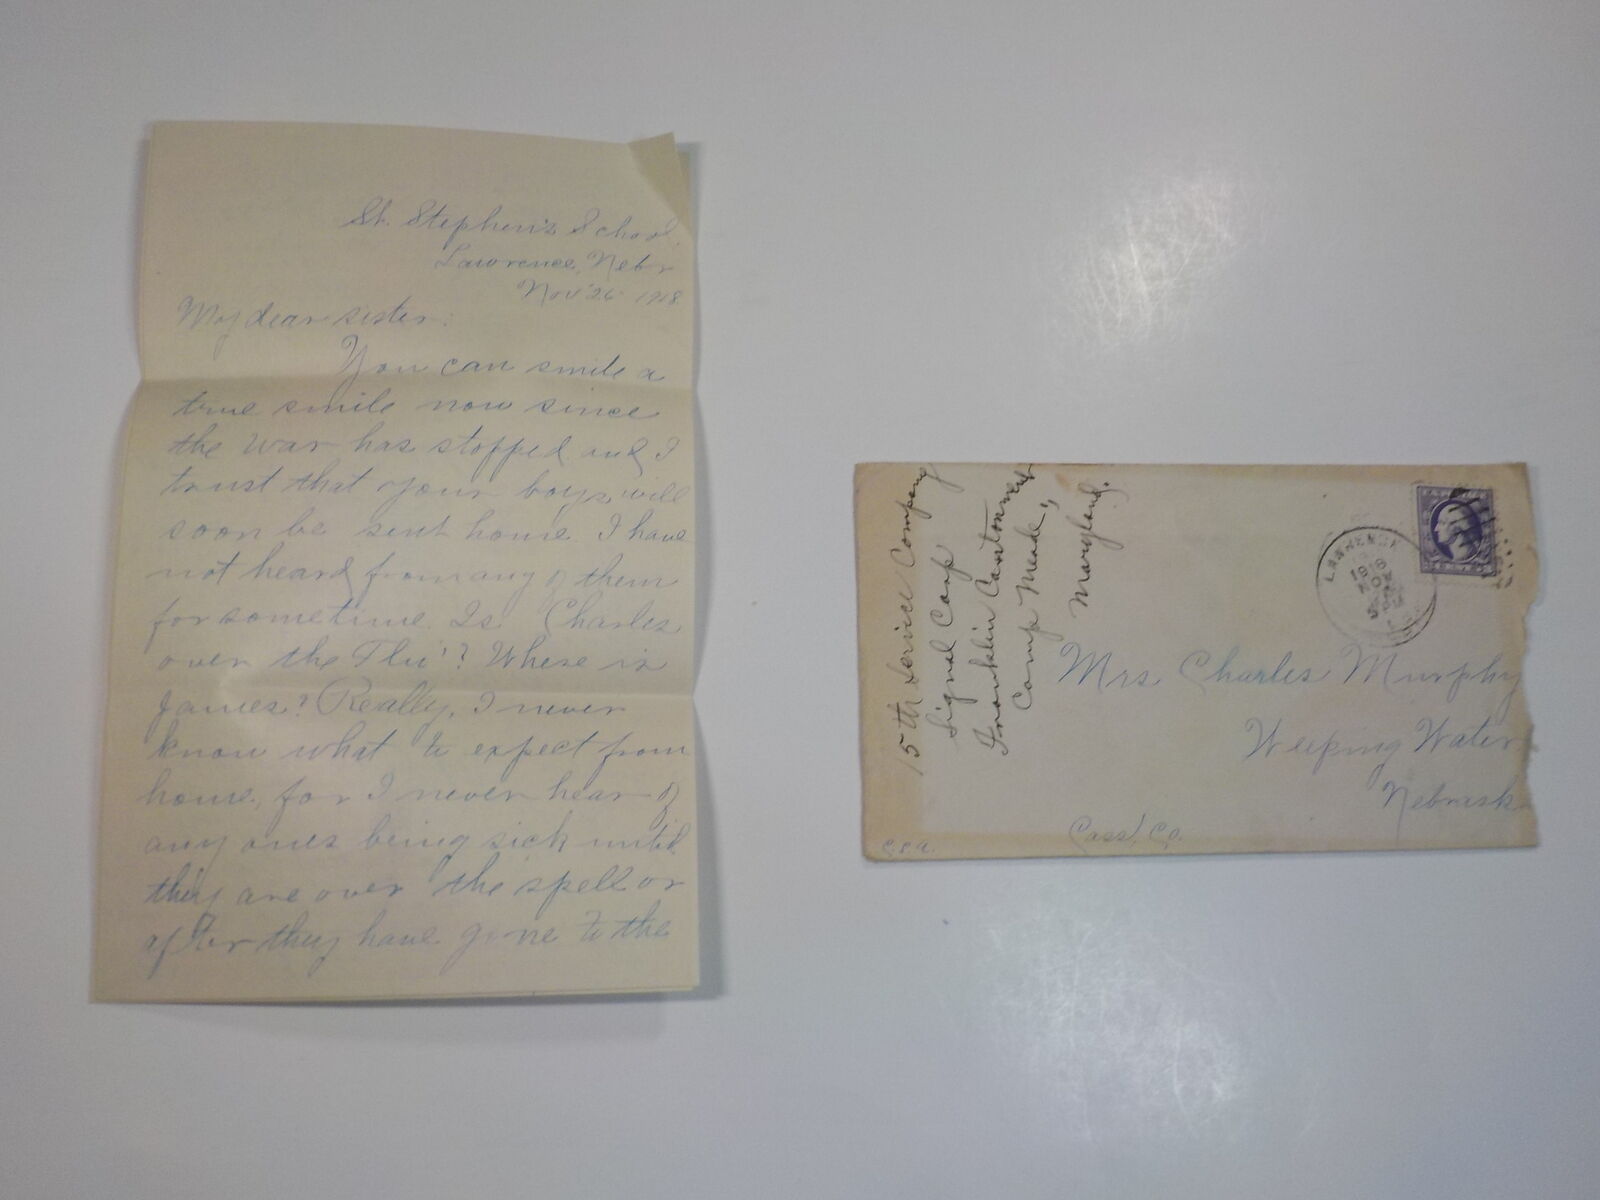 St. Stephen's School.
Lawrence, Nebr
Nov 26 1918
My dear sister:
You can smile a
true smile now since
the war has stopped and I
trust that your boys will
soon be sent home. I have
not heard from any of them
for sometime. Is Charles
over the "Flu"? Where is
James? Really, I never
know what to expect from
home, for I never hear of
any ones being sick until
they are over the spell or
after they have gone to the
15th Service Company
Signal Corp
Franklin Cantonment
Camp Meade,
Maryland.
LAWRENCE
1918
NOV
Mrs Charles Murphy
Weeping Water
Nebrask
Cass, Co.
C.C.A.